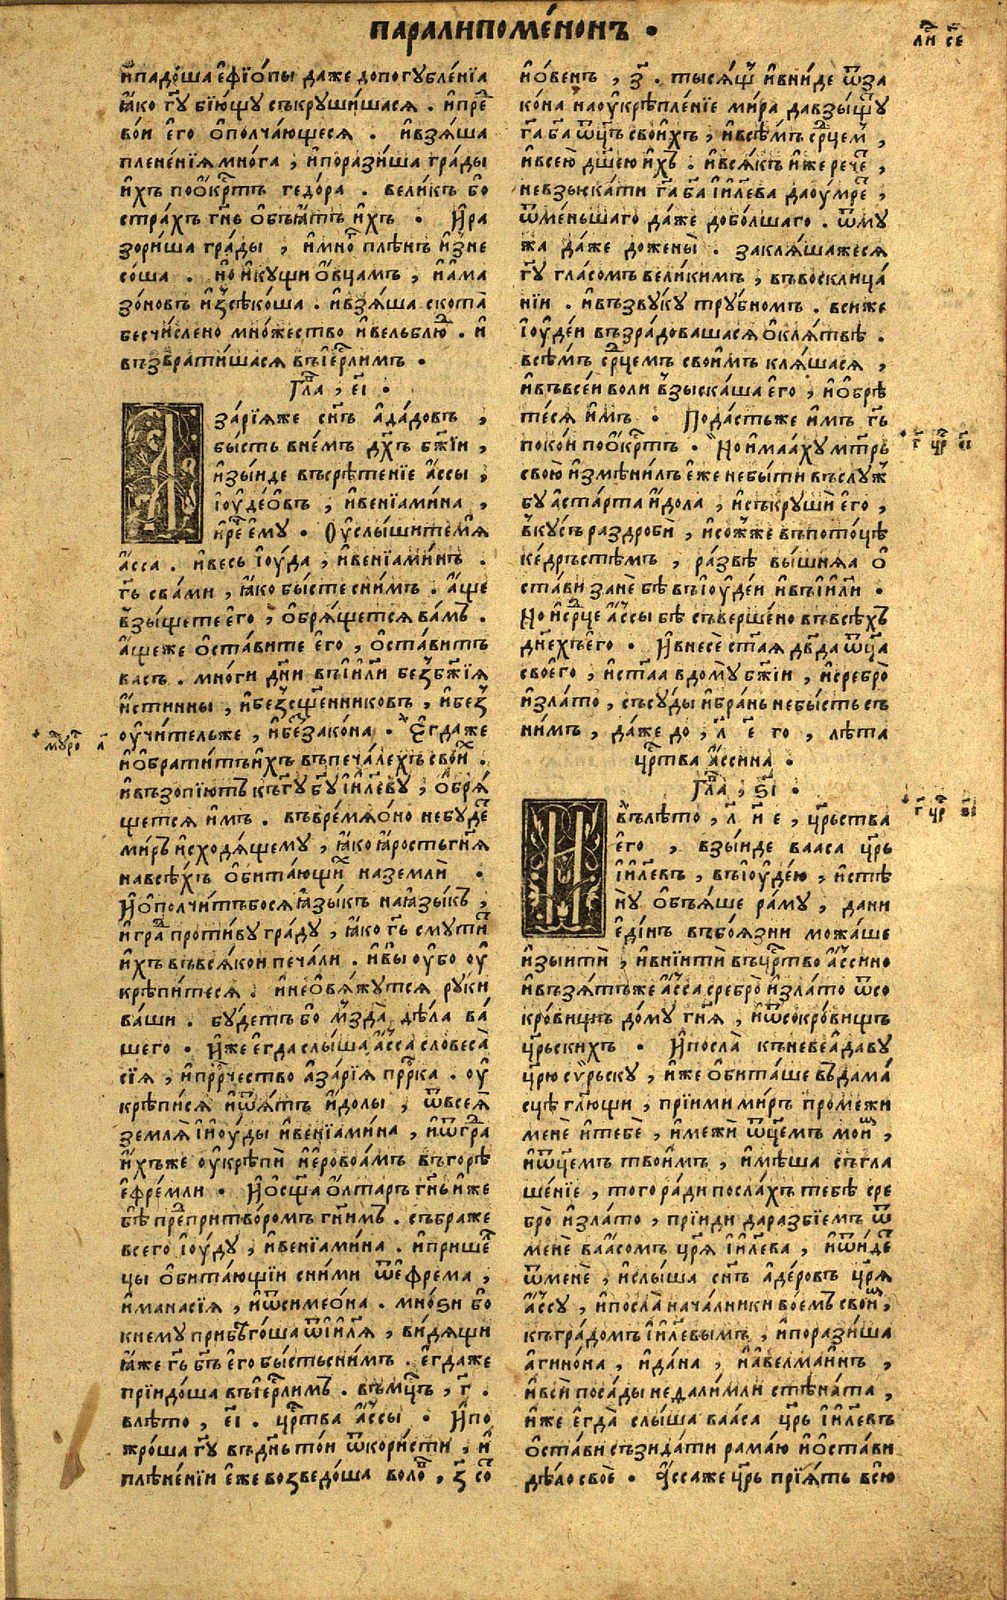 паралипоме́нонъ .
ли҇ сє҃
и҆падо́ша є҆фїо́пы даже допогубле́нїа
ꙗ҆́ко гу҃ бїю́щу съкруши́шася . и҆прⷣе
во́и є҆го̀ ѻ҆полча́ющеся . и҆взя́ша
плене́нїя мно́га , и҆порази́ша гра́ды
и҆́хъ поо҆́крⷭтъ гедо́ра . вели́къ бо
стра́хъ гн҃ь ѻ҆б̾ꙗ́тъ и҆́хъ . И҆ра
зори́ша гра́ды , и҆мно҃ плѣ́нъ и҆зне
со́ша . но̀ и҆кущи ѻ҆вцамъ , и҆а҆ма
зо́новъ и҆зсѣко́ша . и҆взя́ша скота̀
бесчи́слено мно́жество и҆вельблю́ⷣ . и҆
възврати́шася въі҆ерⷭли́мъ .
Гла҃ , є҃і .
Азарїяже сн҃ъ а҆да́довъ ,
бы́сть вне́мъ дх҃ъ бж҃їи ,
и҆зы́иде въсрѣ́тенїе а҆́ссы ,
і҆оуде́овъ , и҆венїами́на ,
и҆рⷱе є҆му . Оу҆слы́шитемѝя
а҆́сса . и҆весь і҆оу́да , и҆венїами́нъ .
гь҃ сва́ми , ꙗ҆́ко бы́сте сни́мъ . а҆́ще
взы́щете є҆го̀ , ѻ҆бря́щется ва́мъ .
а҆́щеже ѻ҆ста́вите є҆го̀ , ѻ҆ста́витъ
васъ . мно́ги дн҃и въі҆и҃ли без̾бж҃їя
и҆́стинны , и҆без̾сщ҃енниковъ , и҆без̾
оу҆чи́тельже , и҆беза́ко́на . Є҆гдаже
и҆ѻ҆брати́тъ и҆́хъ въпеча́лехъ свои҃ .
и҆възопїю́тъ къгу҃ бу҃ і҆и҃леву , ѻ҆бря́
щется и҆мъ . въвре́мя ѻ҆но небу́деⷮ
ми́ръ и҆сходя́щему , ꙗ҆́ко ꙗ҆́рость гн҃я
навсѣ́хъ ѻ҆бита́ющи҃ наземлѝ .
И҆ѻ҆полчи́тъбося ꙗ҆зы́къ наꙗ҆зы́къ ,
и҆граⷣ проти́ву гра́ду , ꙗ҆́ко гь҃ смути́ⷮ
и҆́хъ въвся́кои печа́ли . и҆вы̀ оу҆бо оу҆
крѣпи́теся . и҆неѻ҆вя́жутся руки
ва́ши . бу́детъ бо мзда̀ дѣ́ла ва́
шего . И҆́же є҆гда слы́ша а҆́сса словеса̀
сїя̀ , и҆прⷪрчество а҆за́рїя прⷪрка . оу҆
крѣпи́ся и҆ѿꙗ҆тъ и҆́долы , ѿвсея̀
земля̀ і҆і҆оу́ды и҆венїами́на , и҆ѿграⷣ
и҆́хъже оу҆крѣпѝ и҆еровоа́мъ въгорѣ̀
є҆фре́мли . И҆ѻ҆сщ҃а ѻ҆лта́ръ гн҃ь и҆́же
бѣ̀ преⷣпритво́ромъ гн҃имъ . събраже
всего̀ і҆оу́ду , и҆венїами́на . и҆прише́лⷧ
цы ѻ҆бита́ющїи сни́ми ѿє҆фре́ма ,
и҆манасі́я , и҆ѿсимео́на . мно́ѕи бо
кнему прибѣго́ша ѿі҆и҃ля , ви́дящи
ꙗ҆́же гь҃ бг҃ъ є҆го̀ бы́сть сни́мъ . є҆гдаже
прїидо́ша въі҆ерⷭли́мъ . въмцⷭъ , г҃ .
влѣ́то , є҃і . црⷭтва а҆́ссы . И҆по
жро́ша гу҃ въдн҃ь то́и ѿкоры́сти , и҆
плѣне́нїи є҆же возведо́ша воло́ⷡ , з҃ соⷮ
і҆о́венъ , з҃ . ты́сящь и҆вни́де ѿза
ко́на наоу҆крѣпле́нїе ми́ра давзы́щу
га҃ ба҃ ѿц҃ъ свои́хъ , и҆всѣ́мъ срⷣцемъ ,
и҆всею̀ дш҃ею и҆́хъ . и҆вся́къ и҆́же речеⷮ ,
невзыска́ти га҃ ба҃ і҆и҃лева даоу҆мреⷮ ,
ѿме́ньшаго да́же добо́лшаго . ѿму́
жа да́же дожены̀ . закля́шажеся
гу҃ гла́сомъ вели́кимъ , въвосклица́
нїи . и҆възву́ку тру́бномъ . всиже
і҆оуде́и възра́довашася ѻ҆кля́твѣ .
всѣ́мъ срⷣцемъ свои́мъ кля́шася ,
и҆въвсе́и воли взыска́ша є҆го̀ , и҆ѻ҆брѣ
те́ся и҆́мъ . Пода́стьже и҆́мъ гь҃
поко́и поо҆́крⷭтъ . Но и҆маа́ху мт҃рь
свою̀ и҆змѣни́лъ є҆же небы́ти въслуж
бу а҆ста́рта и҆́дола , и҆съкрушѝ є҆го̀ ,
вку́съ раздробѝ , и҆сожже въпото́цѣ
ке́дръстѣмъ , ра́звѣ вы́шняа ѻ҆
ста́ви занѐ бѣ̀ въі҆оуде́и и҆въі҆и҃ли .
Но и҆срⷣце а҆́ссы бѣ̀ съверше́но въвсѣ́хъ
дн҃ехъ є҆го̀ . И҆внесѐ ст҃ая дв҃да ѿц҃а
своего̀ , и҆ст҃аа вдо́му бж҃їи , и҆сребро̀
и҆зла́то , съсу́ды и҆бра́нь небы́сть съ
ни́мъ , да́же до , л҃ є҃ го , лѣ́та
црⷭтва а҆́ссина .
Гла҃ , ѕ҃і .
Въ̀лѣ́то , л҃ и҆ є҃ , црьства
є҆го̀ , взы́иде вааса црь҃
і҆и҃левъ , въі҆оуде́ю , и҆стѣ́
ну ѻ҆б̾я́ше ра́му , дани
є҆ди́нъ въбоя́зни можа́ше
и҆зыитѝ , и҆вни́итѝ въцрⷭтво а҆́ссино
и҆възя́тъже а҆́сса сребро̀ и҆зла́то ѿсо
кро́вищъ до́му гн҃я , и҆ѿсокро́вищъ
црь҃скихъ . И҆посла̀ къневеа́даву
црю҃ су́рьску , и҆́же ѻ҆бита́ше въ̀дама́
сцѣ гл҃ющи , прїими ми́ръ промежи
менѐ и҆тебѐ , и҆межѝ ѿц҃емъ мои́мⷨ ,
и҆ѿц҃емъ твои́мъ , и҆мѣша съгла
ше́нїе , того̀ ра́ди посла́хъ тебѣ̀ сре
бро̀ и҆зла́то , прїиди даразбїемъ ѿ
менѐ ваа́сомъ цр҃я і҆и҃лева , и҆ѿи́деⷮ
ѿменѐ , и҆слы́ша сн҃ъ а҆де́ровъ цр҃я
а҆́ссу , и҆посла̀ нача́лники во́емъ свои́мⷨ ,
къгра́домъ і҆и҃левымъ , и҆порази́ша
а҆гино́на , и҆да́на , и҆а҆велмаи́нъ ,
и҆всѝ поса́ды недали́мли стѣ́ната ,
и҆́же є҆гда̀ слы́ша вааса црь҃ і҆и҃левъ
ѻ҆ста́ви съзида́ти рама́ю и҆ѻ҆ста́ви
дѣ́ло своѐ . А҆́ссаже црь҃ прїя́тъ всю̀